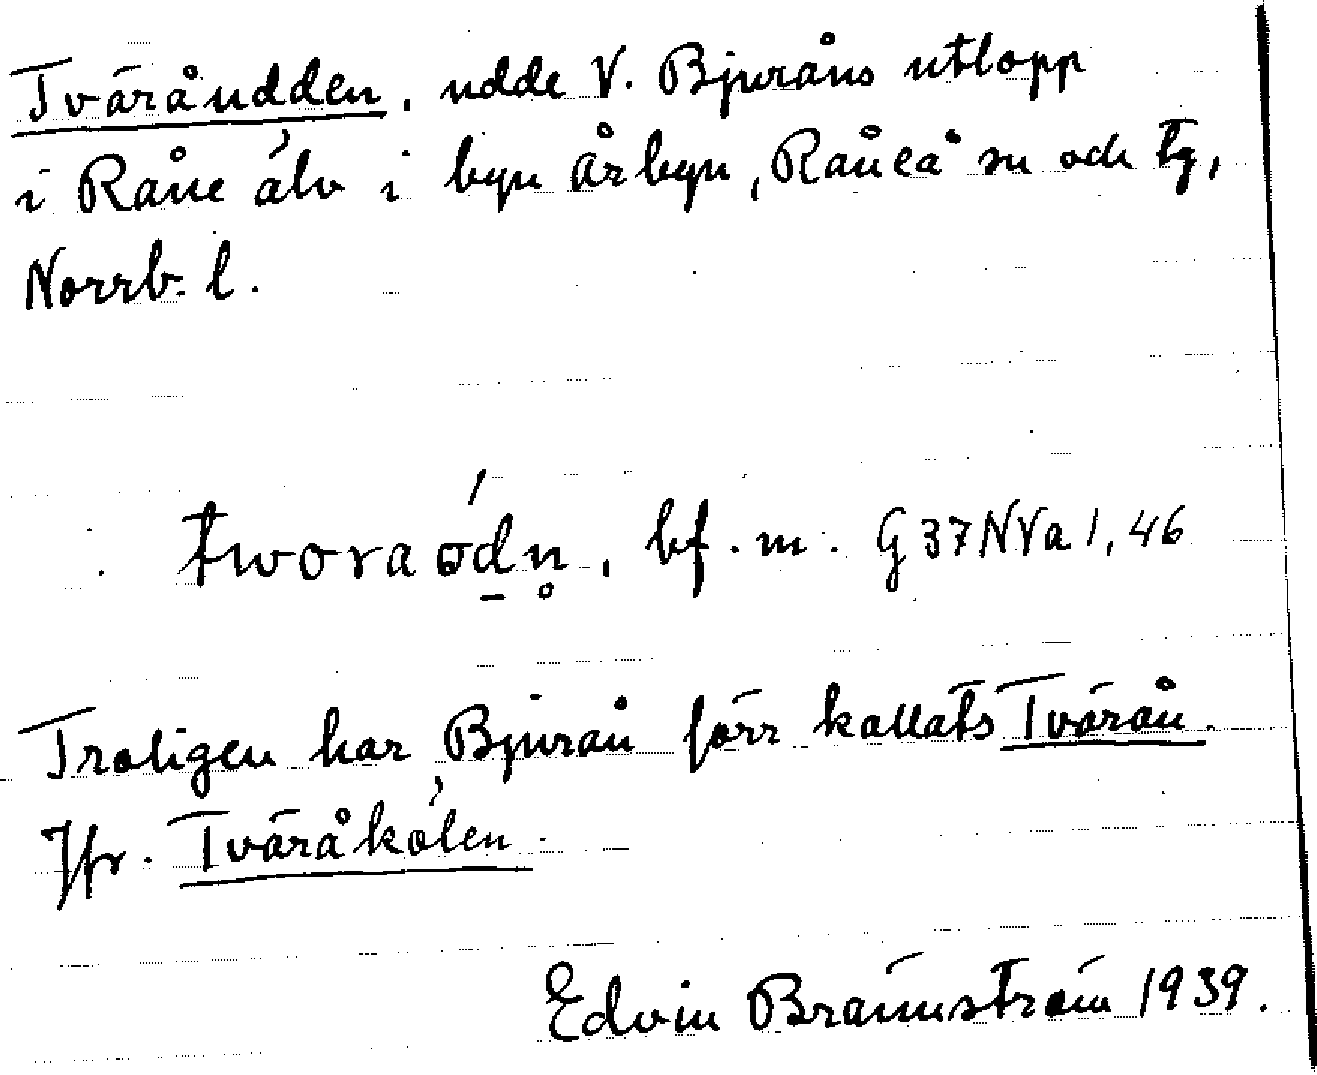 Tväråudden, udde V. Bjuråns utlopp
i Råne älv i byn Årbyn, Råneå sn och tg,
Norrb. l.
tworaód̲n̥, bf. m. G37NVa1,46
Troligen har Bjurån förr kallats Tvärån.
Jfr. Tväråkölen.
Edvin Brännström 1939.